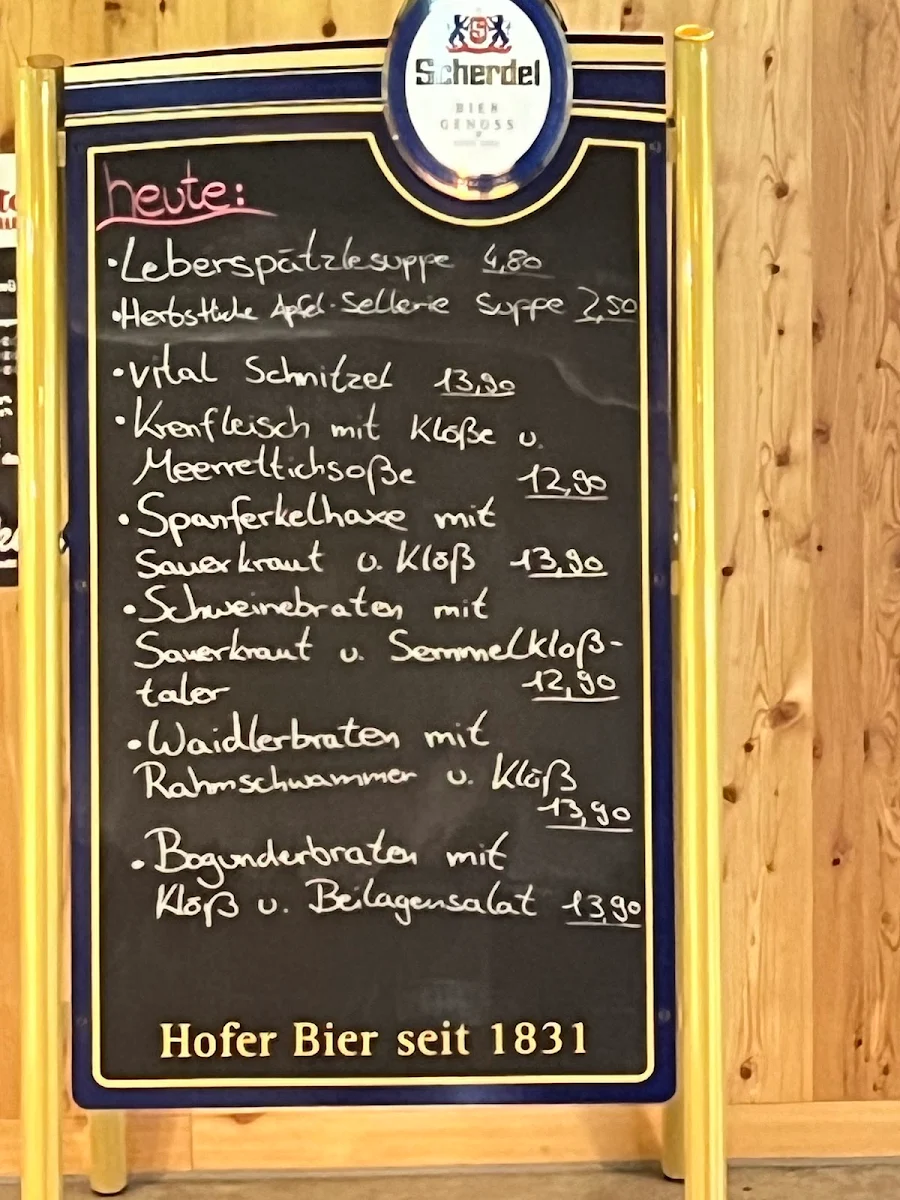 Scherdel
BIER
GENUSS
heute:
• Leberspätzlesuppe 4,80
• Herbstliche Apfel-Sellerie Suppe 7,50
• Vital Schnitzel 13,90
• Krenfleisch mit Klöße u.
Meerrettichsoße 12,90
• Spanferkelhaxe mit
Sauerkraut u. Klöß 13,90
• Schweinebraten mit
Sauerkraut u. Semmelkloß-
taler 12,90
• Waidlerbraten mit
Rahmschwammer u. Klöß
13,90
• Bogunderbraten mit
Klöß u. Beilagensalat 13,90
Hofer Bier seit 1831